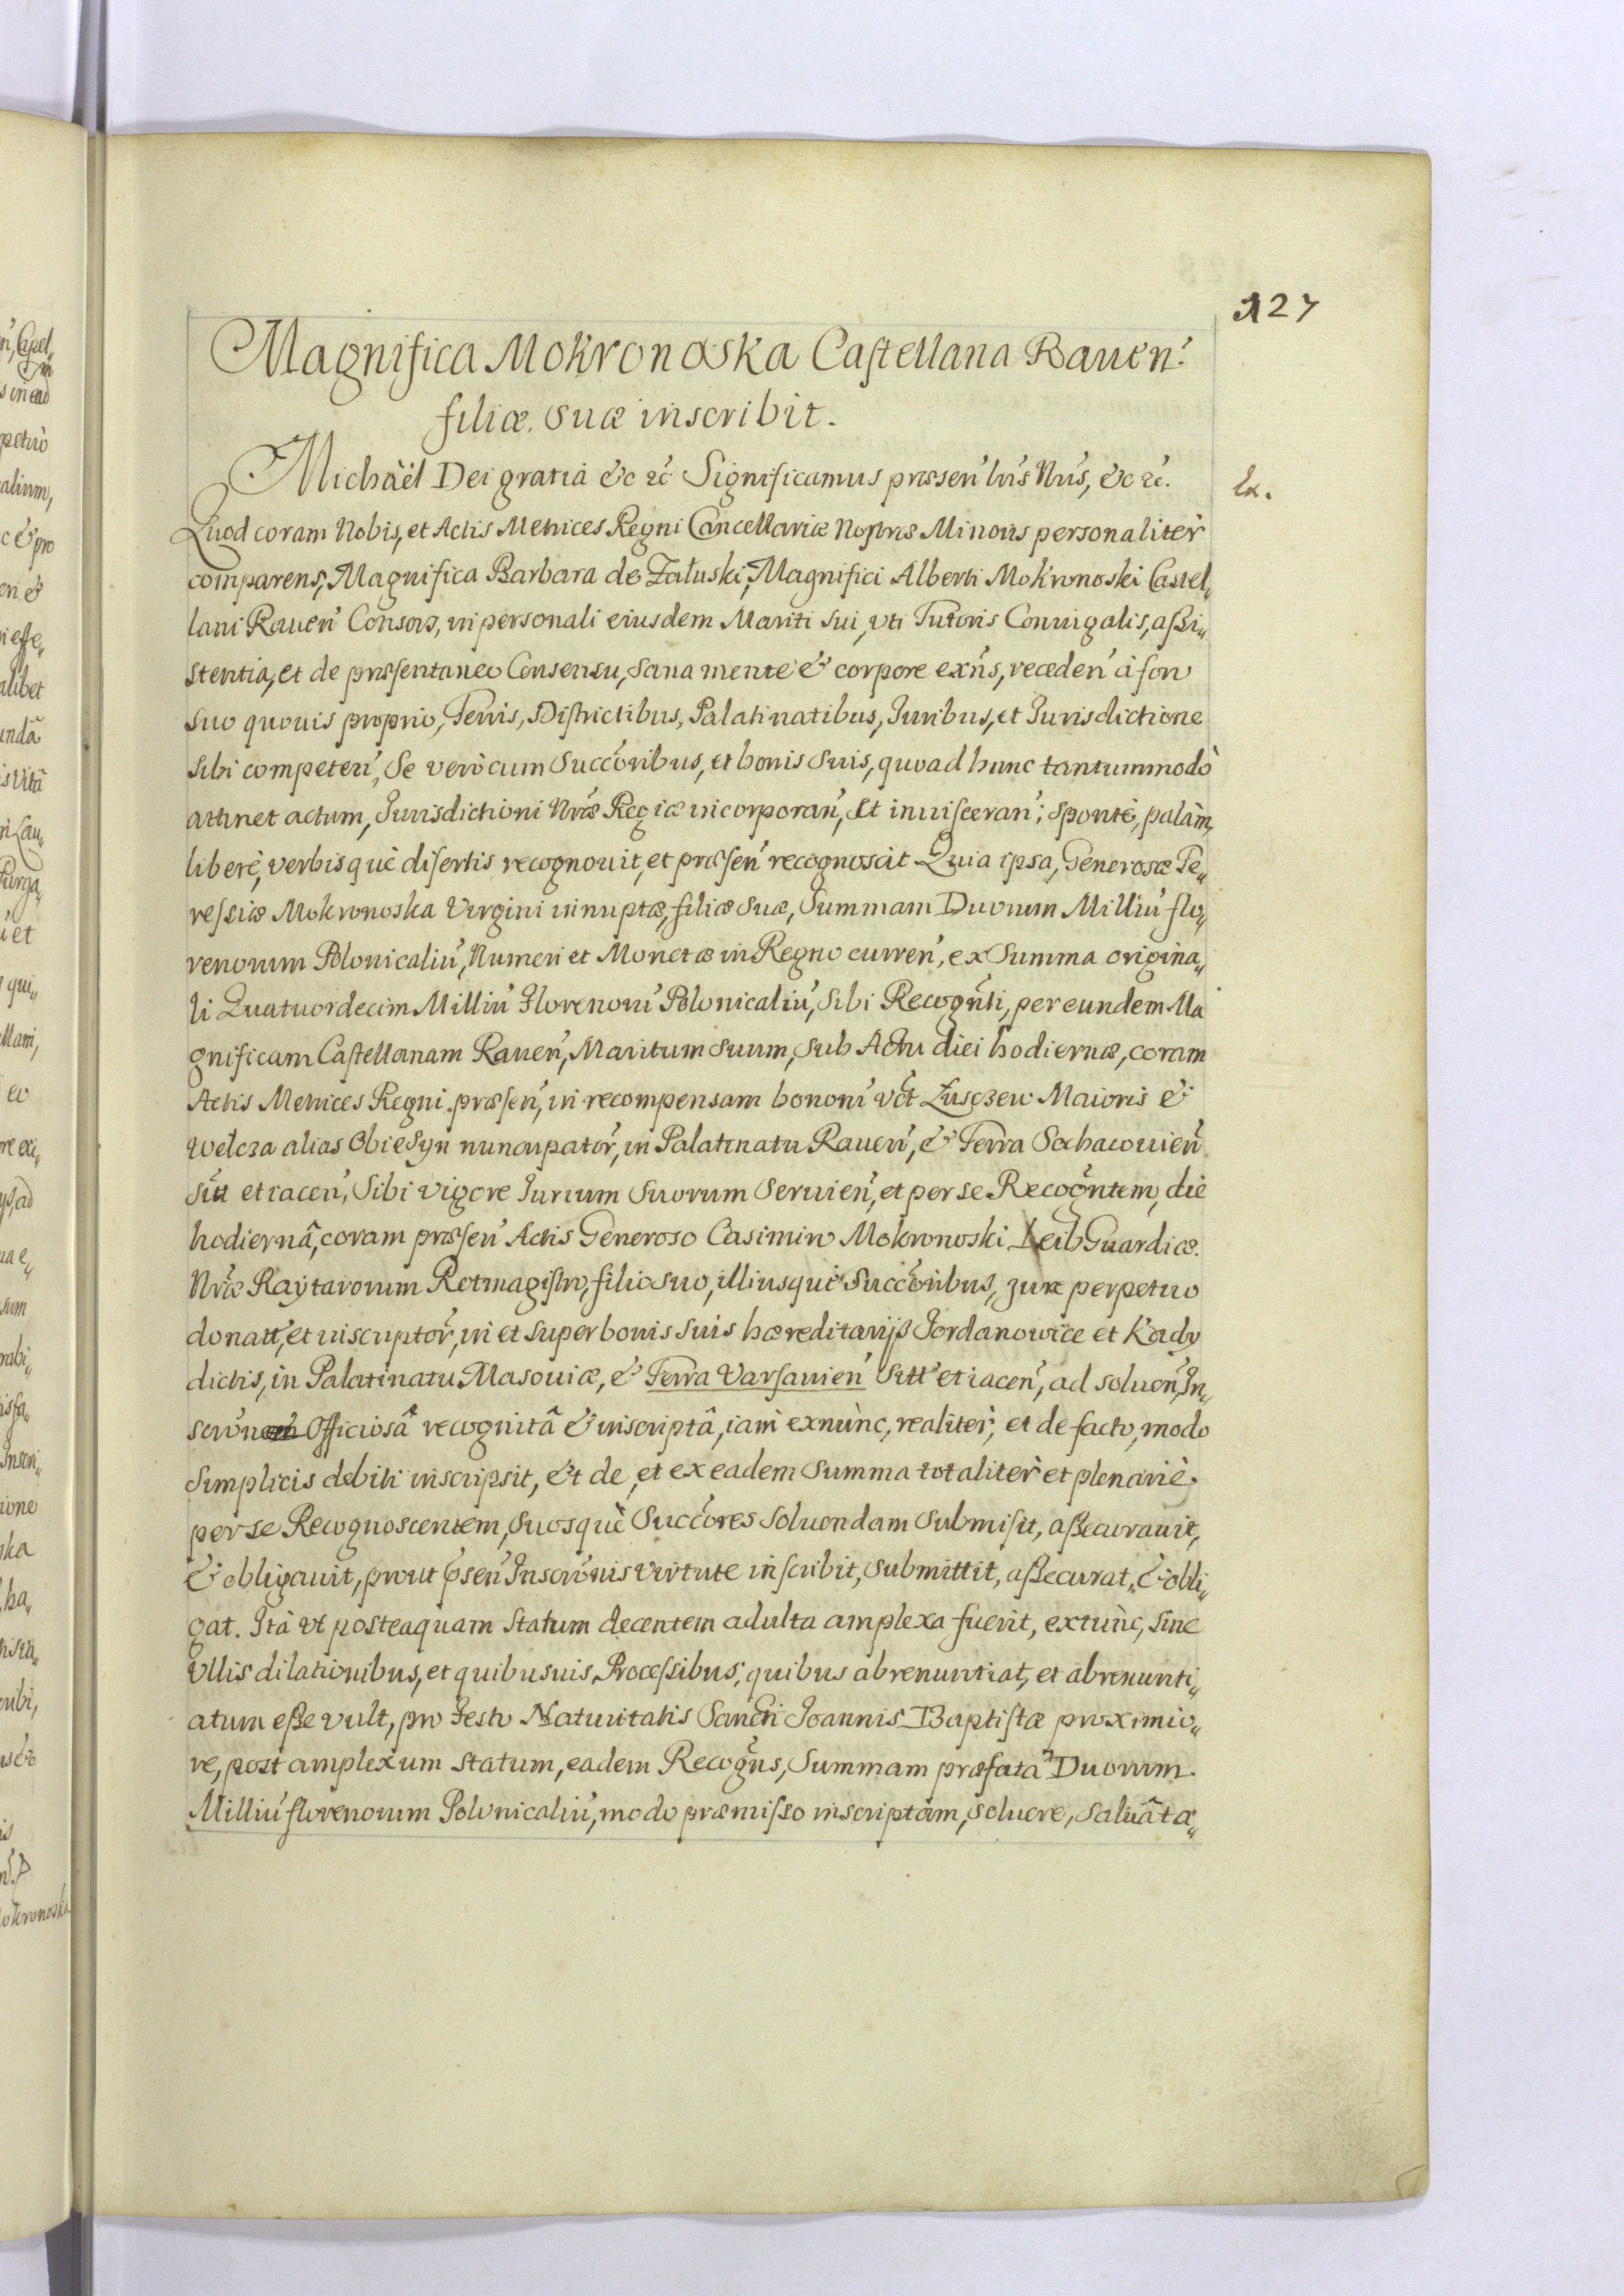 127
Magnifica Mokronoska Castellana Rauen:
filiæ suæ inscribit.
Michaël Dei gratia &c &c Significamus præsen' lris Nris, &c &c.
Ex.
Quod coram Nobis, et Actis Metrices Regni Cancellariæ Nostræ Minoris personaliter
comparens, Magnifica Barbara de Załuski, Magnifici Alberti Mokronoski Castel„
lani Rauen' Consors, in personali eiusdem Mariti sui, vti Tutoris Coniugalis, assi„
stentia, et de præsentaneo Consensu, sana mente & corpore exñs, receden' à foro
suo quouis proprio, Terris, Districtibus, Palatinatibus, Juribus, et Jurisdictione
sibi competen', Se verò cum Succoribus, et bonis suis, quoad hunc tantummodò
attinet actum, Jurisdictioni Nræ Regiæ incorporan', Et inuisceran'; sponte, palàm,
liberè, verbisquè disertis recognouit, et præsen' recognoscit Quia ipsa, Generosæ Te„
ressiæ Mokronoska Virgini innuptæ, filiæ suæ, Summam Duorum Milliu' flo„
renorum Polonicaliu', Numeri et Monetæ in Regno curren', ex Summa origina„
li Quatuordecim Milliu' Florenoru' Polonicaliu', sibi Recognti, per eundem Ma
gnificam Castellanam Rauen', Maritum suum, sub Actu diei hodiernæ, coram
Actis Metrices Regni præsen', in recompensam bonoru' vct Łusczew Maioris &
Welcza alias Obiesyn nuncupator', in Palatinatu Rauen', & Terra Sochacouien'
sitt et iacen', Sibi vigore Jurium suorum seruien', et per se Recogntem, die
hodiernâ, coram præsen' Actis Generoso Casimiro Mokronoski Leib Guardiæ
Nræ Raÿtarorum Rotmagistro, filio suo, illiusquè Succoribus, jure perpetuo
donatt', et inscriptor', in et super bonis suis hæreditarijs Jordanowice et Kady
dictis, in Palatinatu Masouiæ, & Terra Varsauien' sitt' et iacen', ad soluen', In„
scrõn Officiosâ recognitâ & inscriptâ, iam exnùnc, realitèr, et de facto, modo
simplicis debiti inscripsit, Et de, et ex eadem Summa totaliter et plenariè
per se Recognoscentem, suosquè Succores soluendam submisit, assecurauit,
& obligauit, prout psen' Inscronis virtute inscribit, submittit, assecurat, & obli„
gat. Ità vt posteaquam statum decentem adulta amplexa fuerit, extùnc, sine
vllis dilationibus, et quibusuis Processibus, quibus abrenuntiat, et abrenunti„
atum esse vult, pro Festo Natiuitatis Sancti Joannis Baptistæ proximio„
re, post amplexum statum, eadem Recogns, Summam præfatã Duorum
Milliu' florenorum Polonicaliu', modo præmisso inscriptam, soluere, saluâ ta„